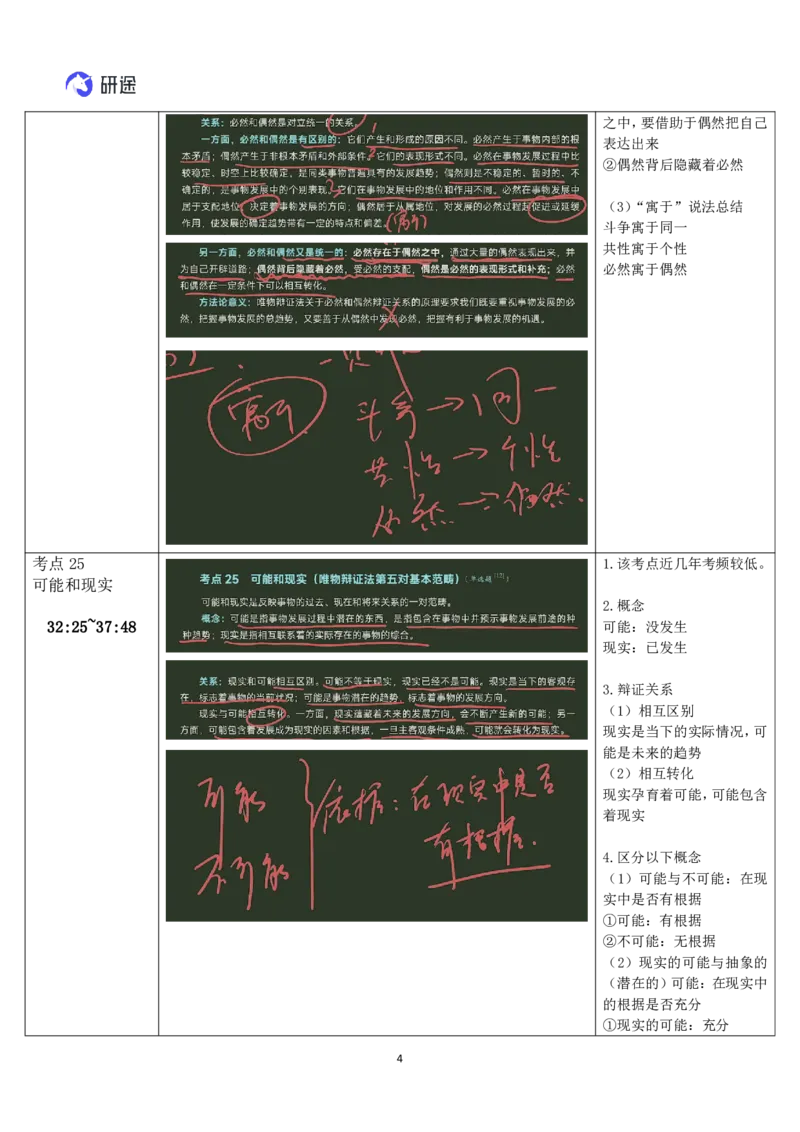 研途
关系：必然和偶然是对立统一的关系。
一方面，必然和偶然是有区别的：它们产生和形成的原因不同。必然产生于事物内部的根
本矛盾；偶然产生于非根本矛盾和外部条件。它们的表现形式不同。必然在事物发展过程中比
较稳定、时空上比较确定，是同类事物普遍具有的发展趋势；偶然则是不稳定的、暂时的、不
确定的，是事物发展中的个别表现。它们在事物发展中的地位和作用不同。必然在事物发展中
居于支配地位，决定着事物发展的方向；偶然居于从属地位，对发展的必然过程起促进或延缓
作用，使发展的确定趋势带有一定的特点和偏差。(寓于)
另一方面，必然和偶然又是统一的：必然存在于偶然之中，通过大量的偶然表现出来，并
为自己开辟道路；偶然背后隐藏着必然，受必然的支配，偶然是必然的表现形式和补充；必然
和偶然在一定条件下可以相互转化。
方法论意义：唯物辩证法关于必然和偶然辩证关系的原理要求我们既要重视事物发展的必
然，把握事物发展的总趋势，又要善于从偶然中发现必然，把握有利于事物发展的机遇。
寓于
斗争→同一
共性→个性
必然→偶然.
之中，要借助于偶然把自己
表达出来
②偶然背后隐藏着必然
（3）“寓于”说法总结
斗争寓于同一
共性寓于个性
必然寓于偶然
考点 25
可能和现实
32:25~37:48
考点 25 可能和现实（唯物辩证法第五对基本范畴）
可能和现实是反映事物的过去、现在和将来关系的一对范畴。
概念：可能是指事物发展过程中潜在的东西，是指包含在事物中并预示事物发展前途的种
种趋势；现实是指相互联系着的实际存在的事物的综合。
关系：现实和可能相互区别。可能不等于现实，现实已经不是可能。现实是当下的客观存
在，标志着事物的当前状况；可能是事物潜在的趋势，标志着事物的发展方向。
现实与可能相互转化。一方面，现实蕴藏着未来的发展方向，会不断产生新的可能；另一
方面，可能包含着发展成为现实的因素和根据，一旦主客观条件成熟，可能就会转化为现实。
可能
不可能
依据：在现实中是否
有根据.
1.该考点近几年考频较低。
2.概念
可能：没发生
现实：已发生
3.辩证关系
（1）相互区别
现实是当下的实际情况，可
能是未来的趋势
（2）相互转化
现实孕育着可能，可能包含
着现实
4.区分以下概念
（1）可能与不可能：在现
实中是否有根据
①可能：有根据
②不可能：无根据
（2）现实的可能与抽象的
（潜在的）可能：在现实中
的根据是否充分
①现实的可能：充分
4